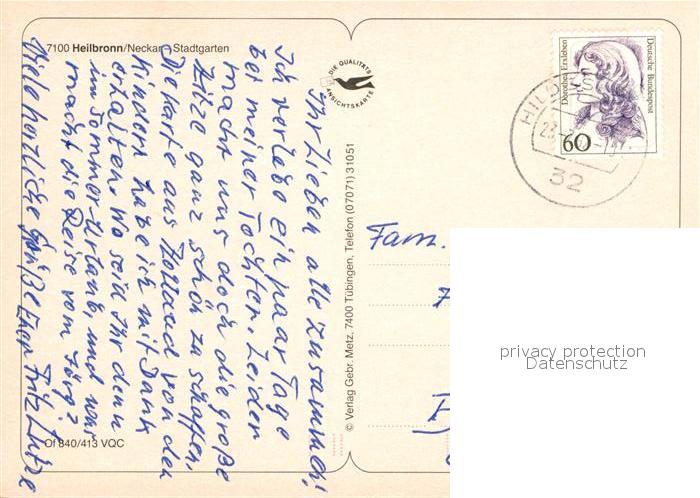 7100 Heilbronn/Neckar - Stadtgarten
Ihr Lieben alle zusammen!
Ich verlebe ein paar Tage
bei meiner Tochter. Leider
macht uns doch die große
Hitze ganz schön zu schaffen.
Die Karte aus Holland von den
Kindern habe ich mit Dank
erhalten. Wo seid Ihr denn
im Sommer-Urlaub, und was
macht die Reise vom Jörg?
Viele herzliche Grüße Euer Fritz
Of 840/413 VQC
DIE QUALITÄTS
ANSICHTSKARTE
© Verlag Gebr. Metz, 7400 Tübingen, Telefon (07071) 31051
Dorothea Erxleben
Deutsche Bundespost
60
32
Fam.
privacy protection
Datenschutz